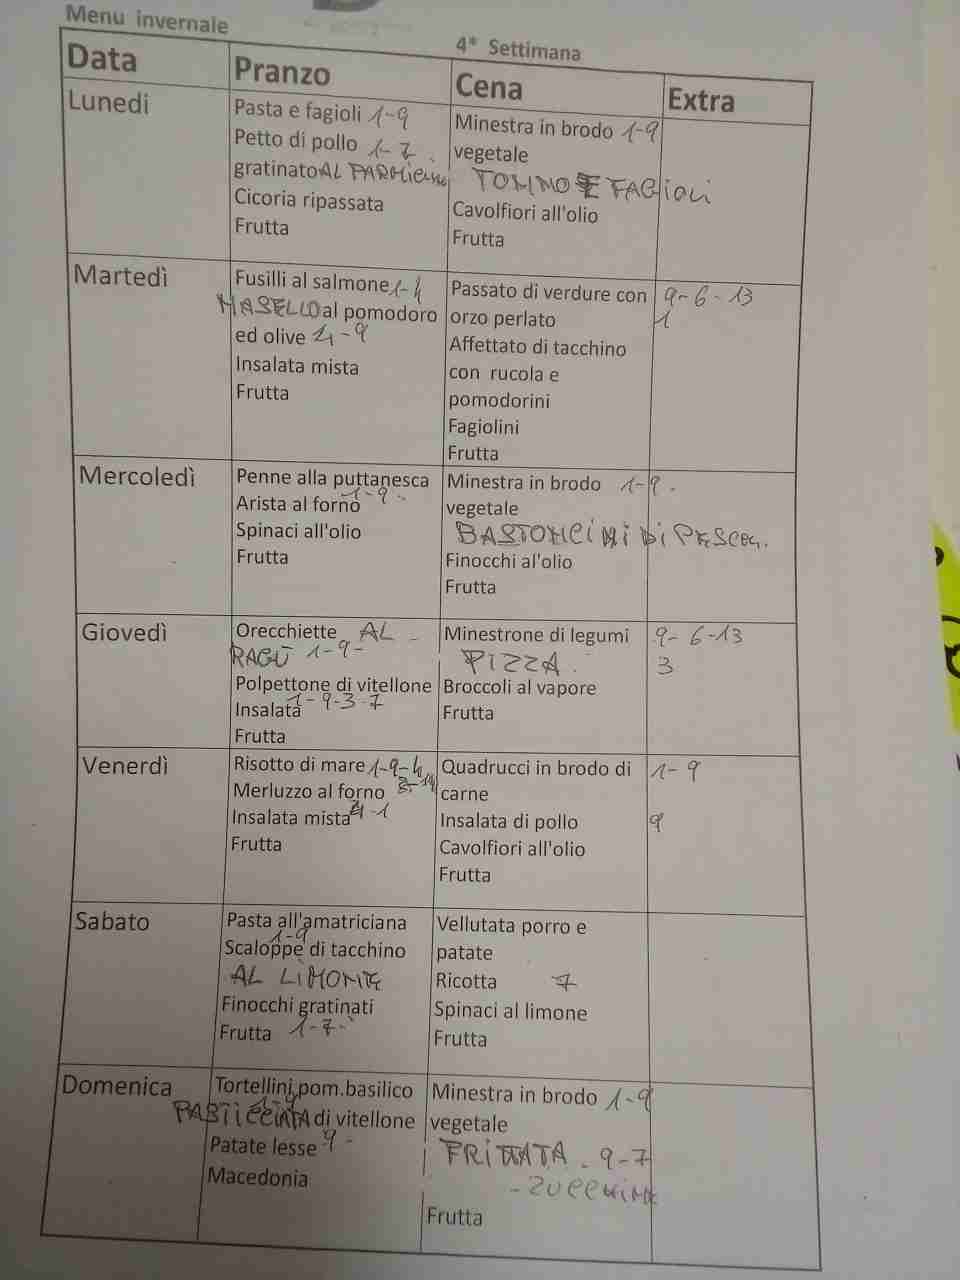 Menu invernale
4* Settimana
Data Pranzo Cena Extra
Lunedi
Pasta e fagioli 1-9
Petto di pollo 1-7.
gratinato AL PARMIGIANO
Cicoria ripassata
Frutta
Minestra in brodo 1-9
vegetale
TONNO E FAGIOLI
Cavolfiori all'olio
Frutta
Martedì
Fusilli al salmone 1-4
NASELLO al pomodoro
ed olive 4-9
Insalata mista
Frutta
Passato di verdure con
orzo perlato
Affettato di tacchino
con rucola e
pomodorini
Fagiolini
Frutta
9-6-13
1
Mercoledì
Penne alla puttanesca
1-9.
Arista al forno
Spinaci all'olio
Frutta
Minestra in brodo 1-9.
vegetale
BASTONCINI DI PESCE
Finocchi al'olio
Frutta
Giovedì
Orecchiette AL -
RAGÙ 1-9-
Polpettone di vitellone
1-9-3-7
Insalata
Frutta
Minestrone di legumi
PIZZA.
Broccoli al vapore
Frutta
9-6-13
3
Venerdì
Risotto di mare 1-9-4
Merluzzo al forno
Insalata mista 4-1
Frutta
Quadrucci in brodo di
carne
Insalata di pollo
Cavolfiori all'olio
Frutta
1-9
9
Sabato
Pasta all'amatriciana
1-9
Scaloppe di tacchino
AL LIMONE
Finocchi gratinati
Frutta 1-7-
Vellutata porro e
patate
Ricotta 7
Spinaci al limone
Frutta
Domenica
Tortellini pom.basilico
1-9
PASTICCIATA di vitellone
Patate lesse 9-
Macedonia
Minestra in brodo 1-9
vegetale
FRITTATA - 9-7
- ZUCCHINE
Frutta